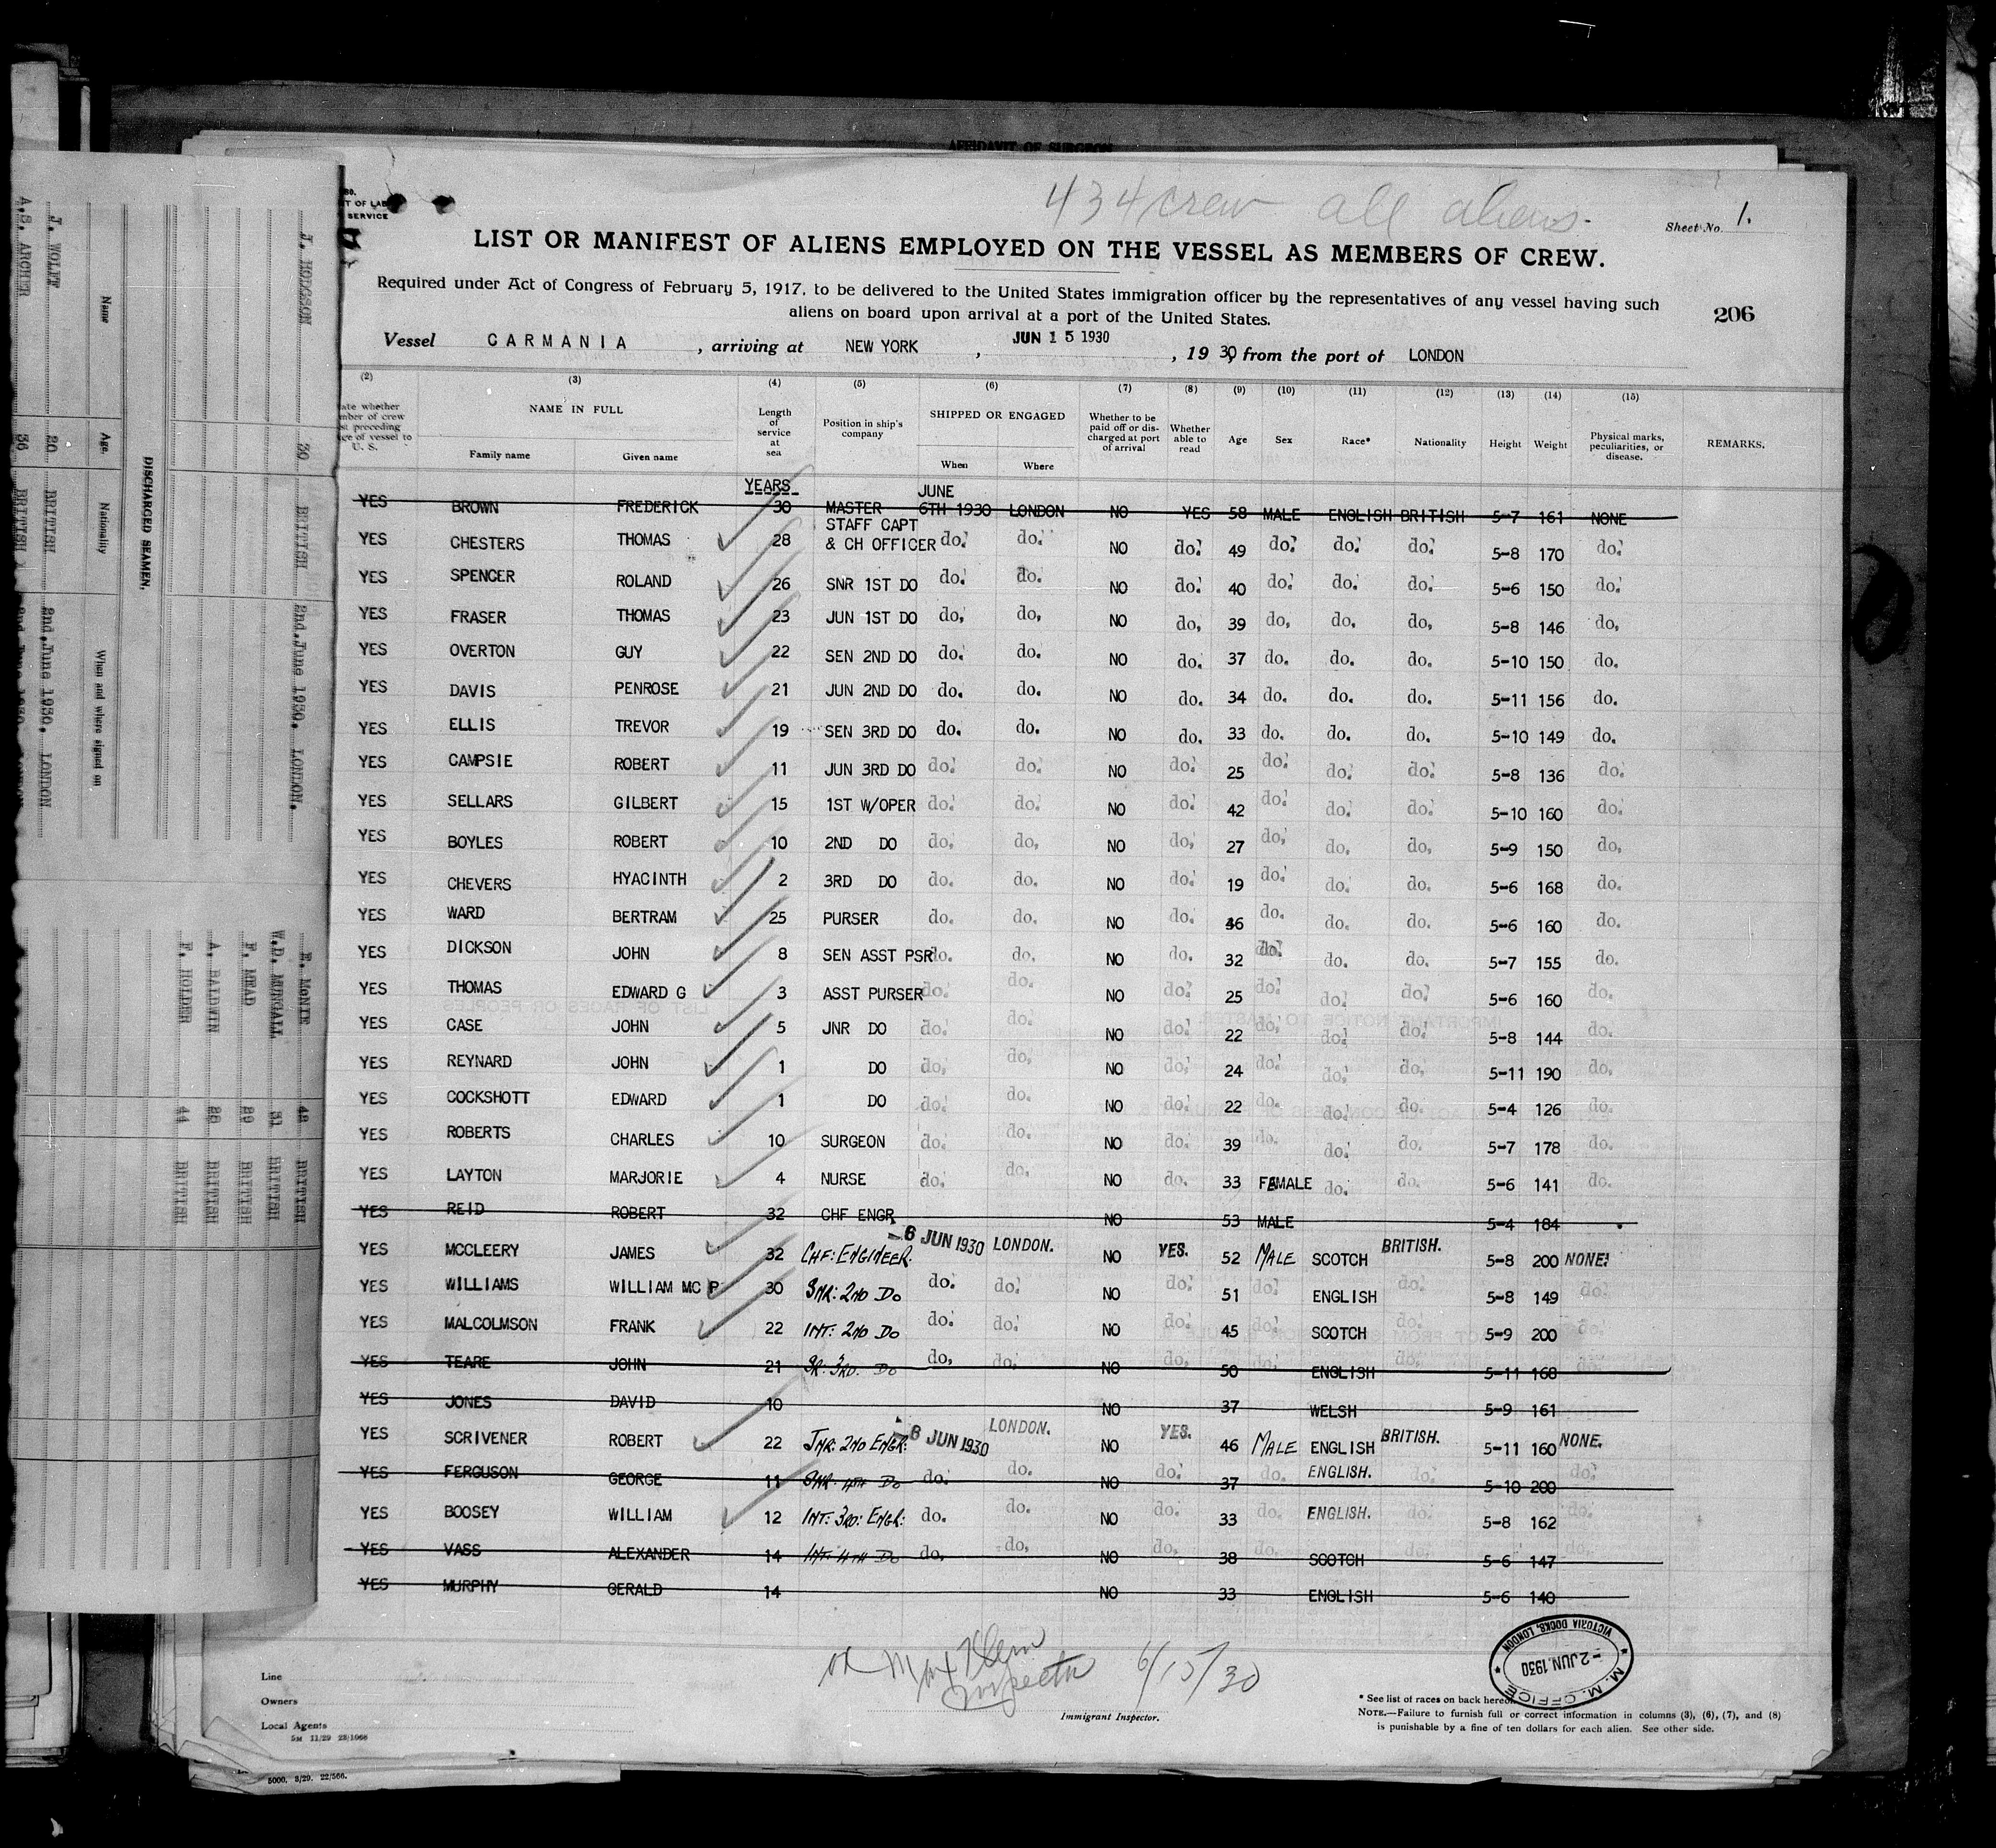 AFFIDAVIT OF SURGEON
434 crew all aliens.
Sheet No. 1.
LIST OR MANIFEST OF ALIENS EMPLOYED ON THE VESSEL AS MEMBERS OF CREW.
Required under Act of Congress of February 5, 1917, to be delivered to the United States immigration officer by the representatives of any vessel having such
aliens on board upon arrival at a port of the United States.
206
Vessel CARMANIA, arriving at NEW YORK, JUN 15 1930, 1930, from the port of LONDON
(2) (3) (4) (5) (6) (7) (8) (9) (10) (11) (12) (13) (14) (15)
NAME IN FULL Length of service at sea Position in ship's company SHIPPED OR ENGAGED Whether to be paid off or discharged at port of arrival Whether able to read Age Sex Race* Nationality Height Weight Physical marks, peculiarities, or disease. REMARKS.
Family name Given name When Where
YEARS JUNE
YES BROWN FREDERICK 30 MASTER 6TH 1930 LONDON NO YES 58 MALE ENGLISH BRITISH 5-7 161 NONE
YES CHESTERS THOMAS 28 STAFF CAPT & CH OFFICER do. do. NO do. 49 do. do. do. 5-8 170 do.
YES SPENCER ROLAND 26 SNR 1ST DO do. do. NO do. 40 do. do. do. 5-6 150 do.
YES FRASER THOMAS 23 JUN 1ST DO do. do. NO do. 39 do. do. do. 5-8 146 do.
YES OVERTON GUY 22 SEN 2ND DO do. do. NO do. 37 do. do. do. 5-10 150 do.
YES DAVIS PENROSE 21 JUN 2ND DO do. do. NO do. 34 do. do. do. 5-11 156 do.
YES ELLIS TREVOR 19 SEN 3RD DO do. do. NO do. 33 do. do. do. 5-10 149 do.
YES CAMPSIE ROBERT 11 JUN 3RD DO do. do. NO do. 25 do. do. do. 5-8 136 do.
YES SELLARS GILBERT 15 1ST W/OPER do. do. NO do. 42 do. do. do. 5-10 160 do.
YES BOYLES ROBERT 10 2ND DO do. do. NO do. 27 do. do. do. 5-9 150 do.
YES CHEVERS HYACINTH 2 3RD DO do. do. NO do. 19 do. do. do. 5-6 168 do.
YES WARD BERTRAM 25 PURSER do. do. NO do. 46 do. do. do. 5-6 160 do.
YES DICKSON JOHN 8 SEN ASST PSR do. do. NO do. 32 do. do. do. 5-7 155 do.
YES THOMAS EDWARD G 3 ASST PURSER do. do. NO do. 25 do. do. do. 5-6 160 do.
YES CASE JOHN 5 JNR DO do. do. NO do. 22 do. do. do. 5-8 144 do.
YES REYNARD JOHN 1 DO do. do. NO do. 24 do. do. do. 5-11 190 do.
YES COCKSHOTT EDWARD 1 DO do. do. NO do. 22 do. do. do. 5-4 126 do.
YES ROBERTS CHARLES 10 SURGEON do. do. NO do. 39 do. do. do. 5-7 178 do.
YES LAYTON MARJORIE 4 NURSE do. do. NO do. 33 FEMALE do. do. 5-6 141 do.
YES REID ROBERT 32 CHF ENGR NO 53 MALE 5-4 184
YES MCCLEERY JAMES 32 CHF: ENGINEER. 6 JUN 1930 LONDON. NO YES. 52 MALE SCOTCH BRITISH. 5-8 200 NONE.
YES WILLIAMS WILLIAM MC P 30 SNR: 2ND DO do. do. NO do. 51 do. ENGLISH do. 5-8 149 do.
YES MALCOLMSON FRANK 22 INT: 2ND DO do. do. NO do. 45 do. SCOTCH do. 5-9 200 do.
YES TEARE JOHN 21 SR: 3RD. DO do. do. NO do. 50 do. ENGLISH do. 5-11 168 do.
YES JONES DAVID 10 NO 37 WELSH 5-9 161
YES SCRIVENER ROBERT 22 JNR: 2ND ENGR: 6 JUN 1930 LONDON. NO YES. 46 MALE ENGLISH BRITISH. 5-11 160 NONE.
YES FERGUSON GEORGE 11 SNR: 4TH DO do. do. NO do. 37 do. ENGLISH. do. 5-10 200 do.
YES BOOSEY WILLIAM 12 INT: 3RD: ENGR: do. do. NO do. 33 do. ENGLISH. do. 5-8 162 do.
YES VASS ALEXANDER 14 INT: 4TH DO do. do. NO do. 38 do. SCOTCH do. 5-6 147 do.
YES MURPHY GERALD 14 NO 33 ENGLISH 5-6 140
Inspector 6/15/30
Immigrant Inspector.
M. M. OFFICE
-2 JUN. 1930
VICTORIA DOCKS, LONDON
Line
Owners
Local Agents
5M 11/29 23/1066
* See list of races on back hereof.
NOTE.—Failure to furnish full or correct information in columns (3), (6), (7), and (8)
is punishable by a fine of ten dollars for each alien. See other side.
5000. 3/29. 22/566.
DISCHARGED SEAMEN.
Name Age. Nationality When and where signed on
J. HODGSON 30 BRITISH 2nd.June 1930. LONDON.
J. WOLFF 20 BRITISH 2nd.June 1930. LONDON
A.S. ARCHER 36 BRITISH
R. McNIE 48 BRITISH
W.D. MUNGALL 31 BRITISH
F. MEAD 29 BRITISH
A. BALDWIN 28 BRITISH
F. HOLDER 44 BRITISH